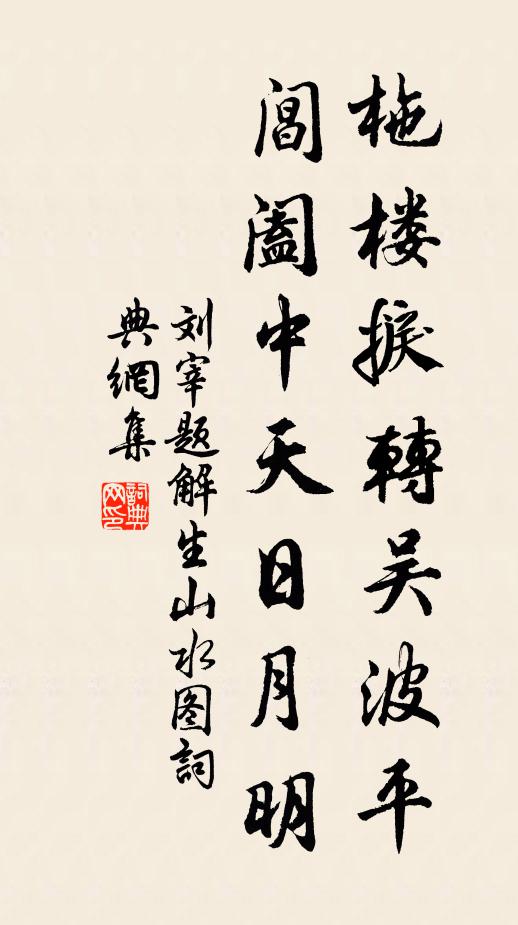 柂楼捩轉吴波平
閶阖中天日月明
刘宰题解生山水图詞
典網集
詞典
网印